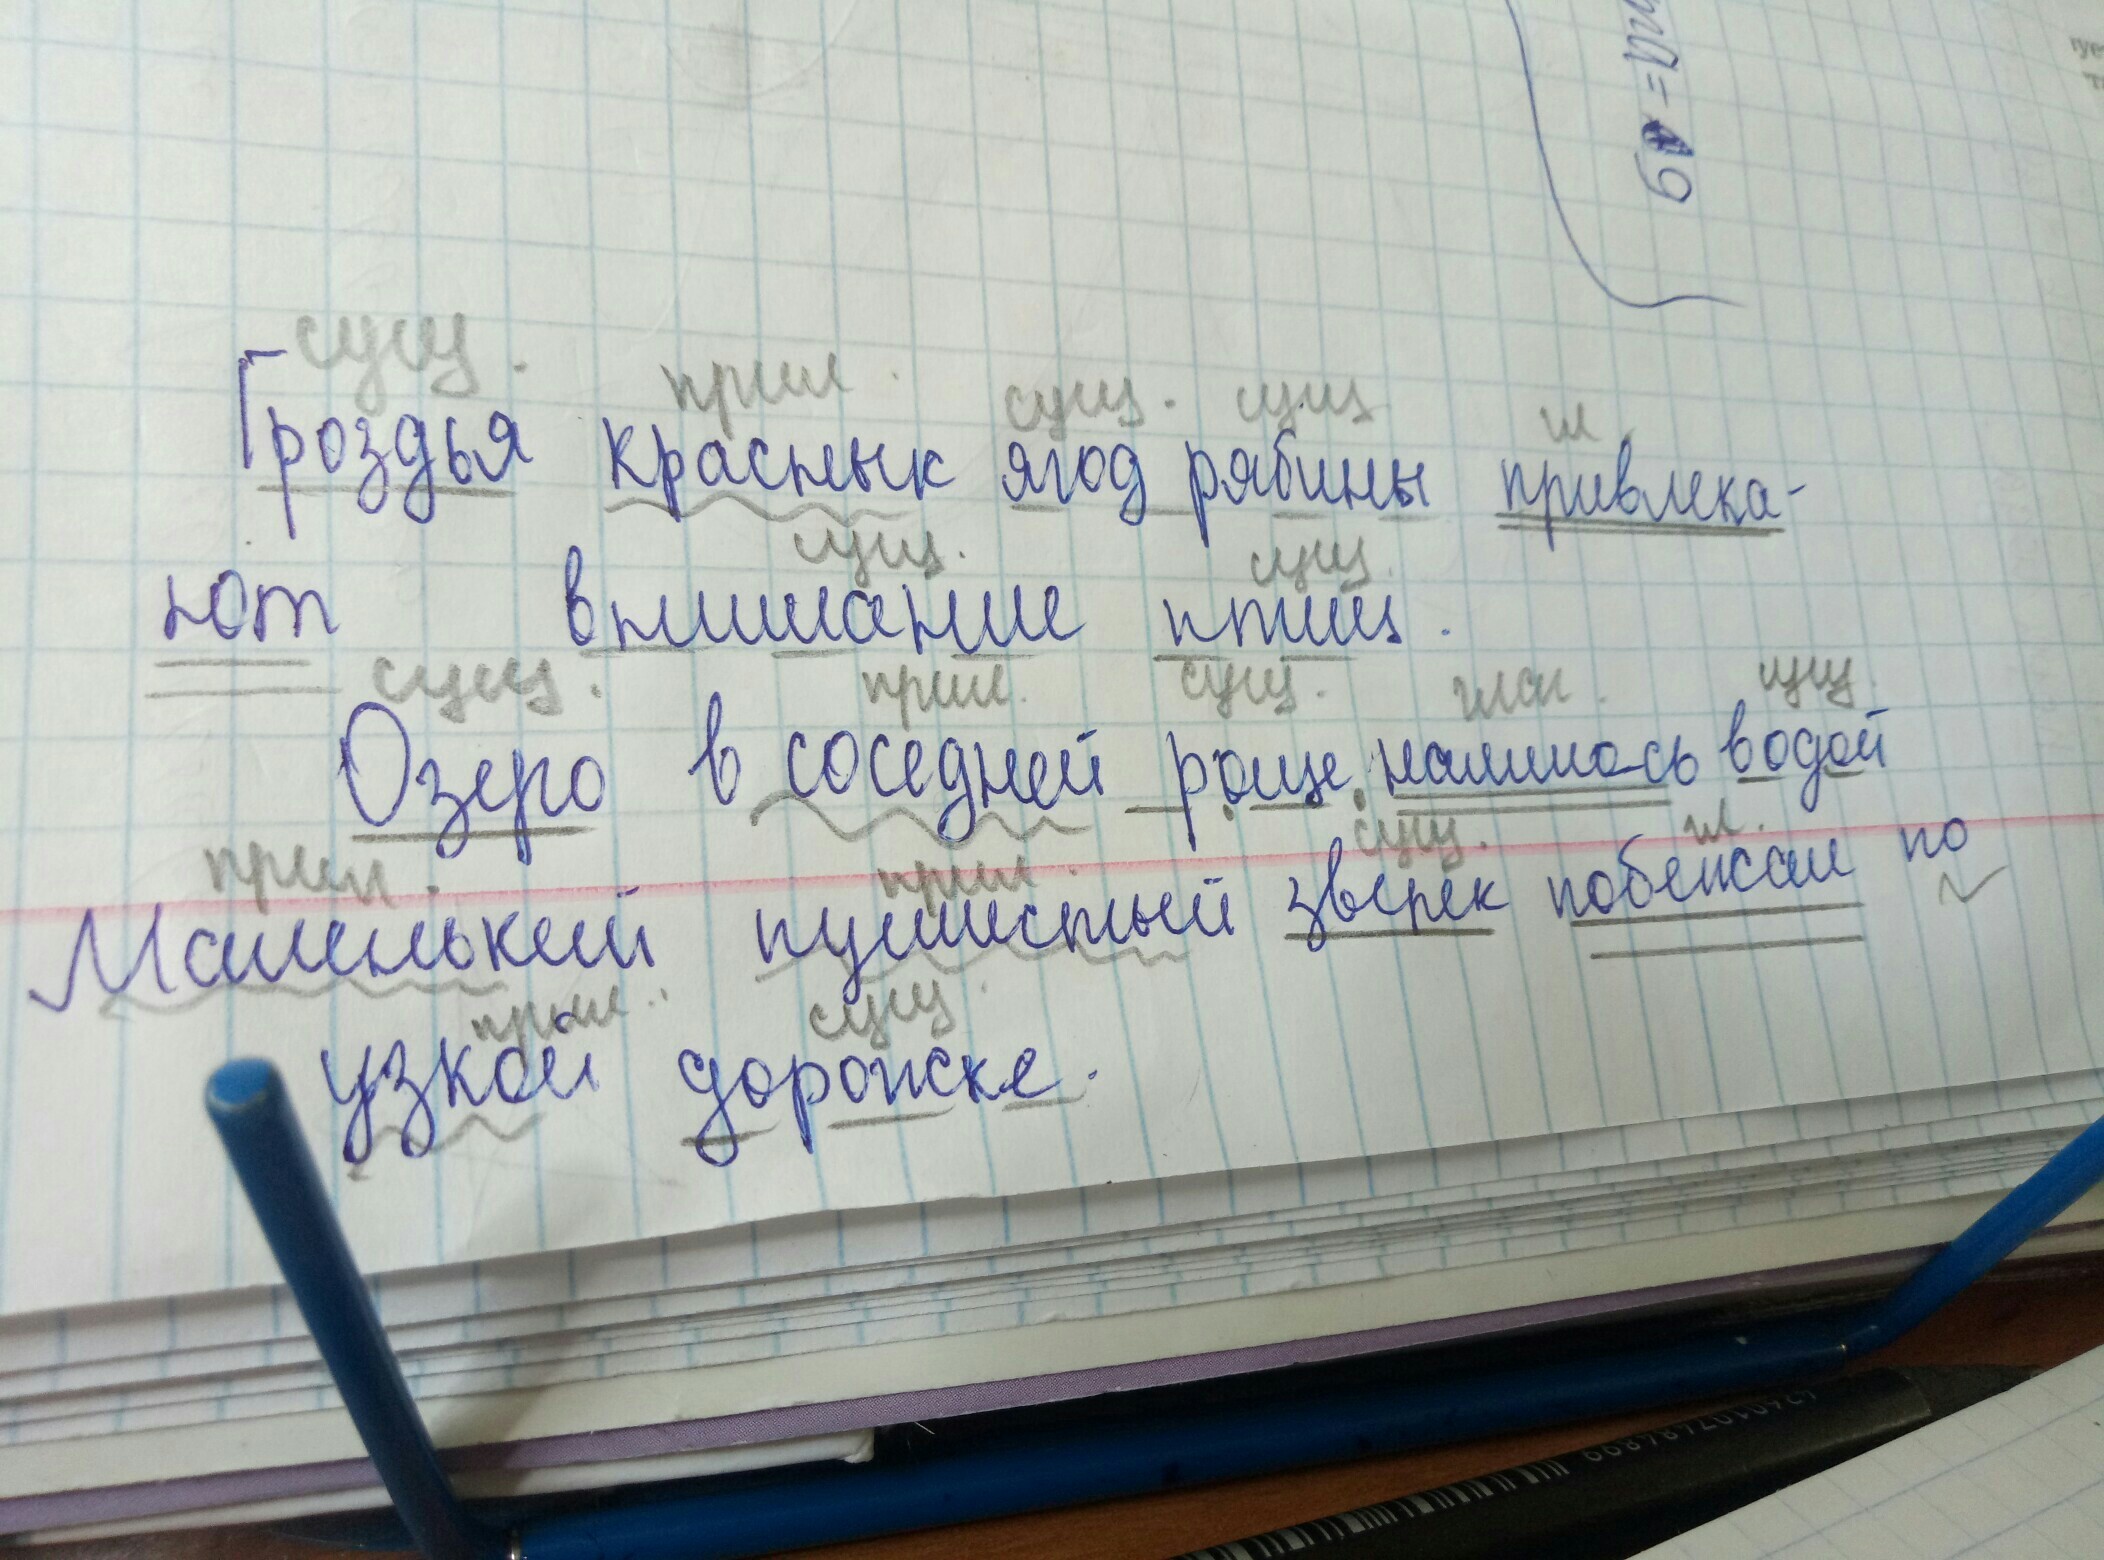 сущ. прил. сущ. сущ гл
Гроздья красных ягод рябины привлека-
сущ. сущ.
ют внимание птиц.
сущ. прил. сущ. глаг. сущ.
Озеро в соседней роще налилось водой
прил. прил. сущ. гл.
Маленький пушистый зверек побежал по
прил. сущ.
узкой дорожке.